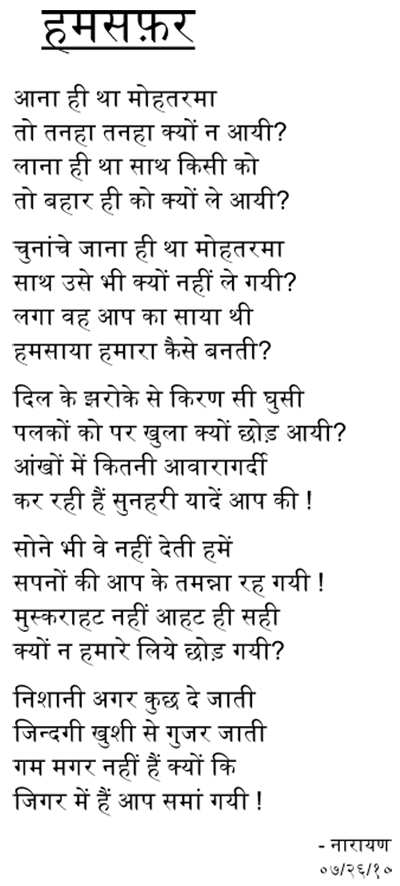 हमसफ़र
आना ही था मोहतरमा
तो तनहा तनहा क्यों न आयी?
लाना ही था साथ किसी को
तो बहार ही को क्यों ले आयी?
चुनांचे जाना ही था मोहतरमा
साथ उसे भी क्यों नहीं ले गयी?
लगा वह आप का साया थी
हमसाया हमारा कैसे बनती?
दिल के झरोके से किरण सी घुसी
पलकों को पर खुला क्यों छोड़ आयी?
आंखों में कितनी आवारागर्दी
कर रही हैं सुनहरी यादें आप की !
सोने भी वे नहीं देती हमें
सपनों की आप के तमन्ना रह गयी !
मुस्कराहट नहीं आहट ही सही
क्यों न हमारे लिये छोड़ गयी?
निशानी अगर कुछ दे जाती
जिन्दगी खुशी से गुजर जाती
गम मगर नहीं हैं क्यों कि
जिगर में हैं आप समां गयी !
- नारायण
०७/२६/१०